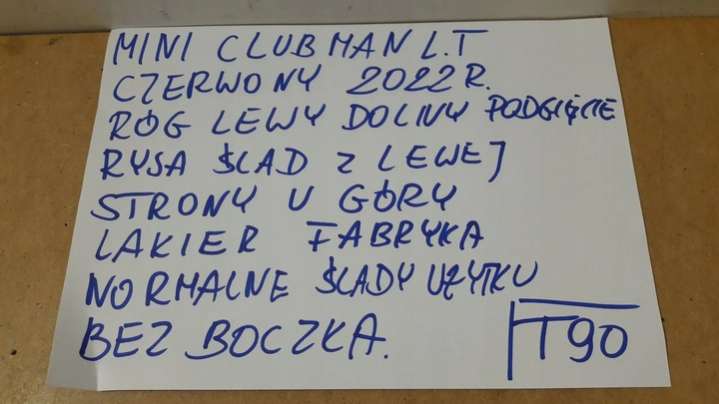 MINI CLUBMAN L.T
CZERWONY 2022R.
RÓG LEWY DOLNY PODGIĘCIE
RYSA ŚLAD Z LEWEJ
STRONY U GÓRY
LAKIER FABRYKA
NORMALNE ŚLADY UŻYTKU
BEZ BOCZKA.
T90